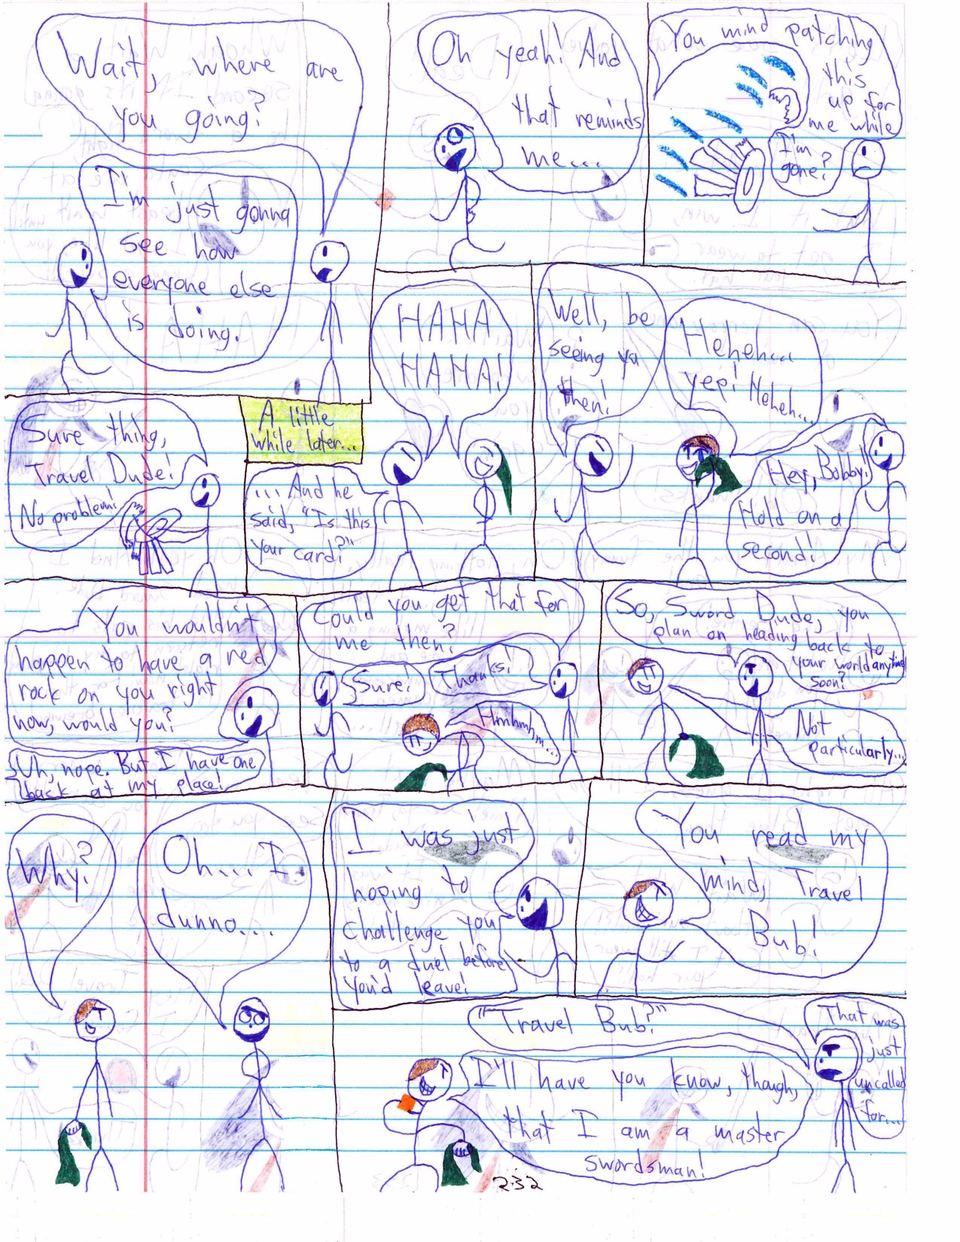 Wait, where are
you going?
I'm just gonna
see how
everyone else
is doing.
Oh yeah! And
that reminds
me...
You mind patching
this
up for
me while
I'm
gone?
Sure thing,
Travel Dude!
No problem!
A little
while later...
... And he
said, "Is this
your card?"
HAHA
HAHA!
Well, be
seeing ya
then!
Heheh...
yep! Heheh...
Hey, Bobby!
Hold on a
second!
You wouldn't
happen to have a red
rock on you right
now, would you?
Uh, nope. But I have one
back at my place!
Could you get that for
me then?
Sure!
Thanks!
Hmhmhm...
So, Sword Dude, you
plan on heading back to
your world anytime
soon?
Not
particularly...
Why?
Oh... I
dunno...
I was just
hoping to
challenge you
to a duel before
you'd leave!
You read my
mind, Travel
Bub!
"Travel Bub?"
That was
just
uncalled
for...
I'll have you know, though,
that I am a master
swordsman!
232